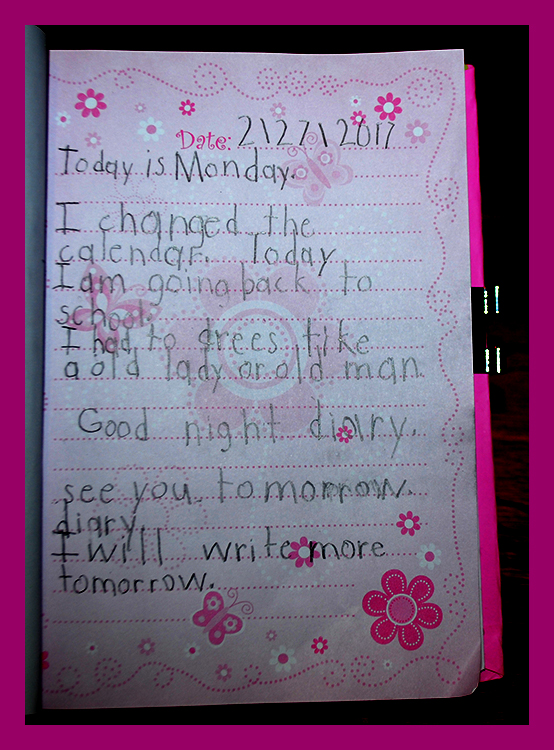 Date: 2\27\2017
Today is Monday.
I changed the
calendar. Today
I am going back to
school.
I had to drees like
a old lady or old man.
Good night diary.
see you tomorrow.
diary.
I will write more
tomorrow.